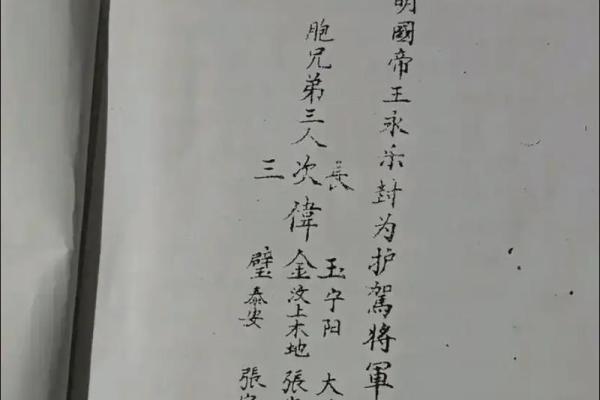 明國帝王永乐封为护駕將軍
胞兄弟三人
長 玉 宁阳 大
次 偉 金 汶上木地 張
三 璧 泰安 張